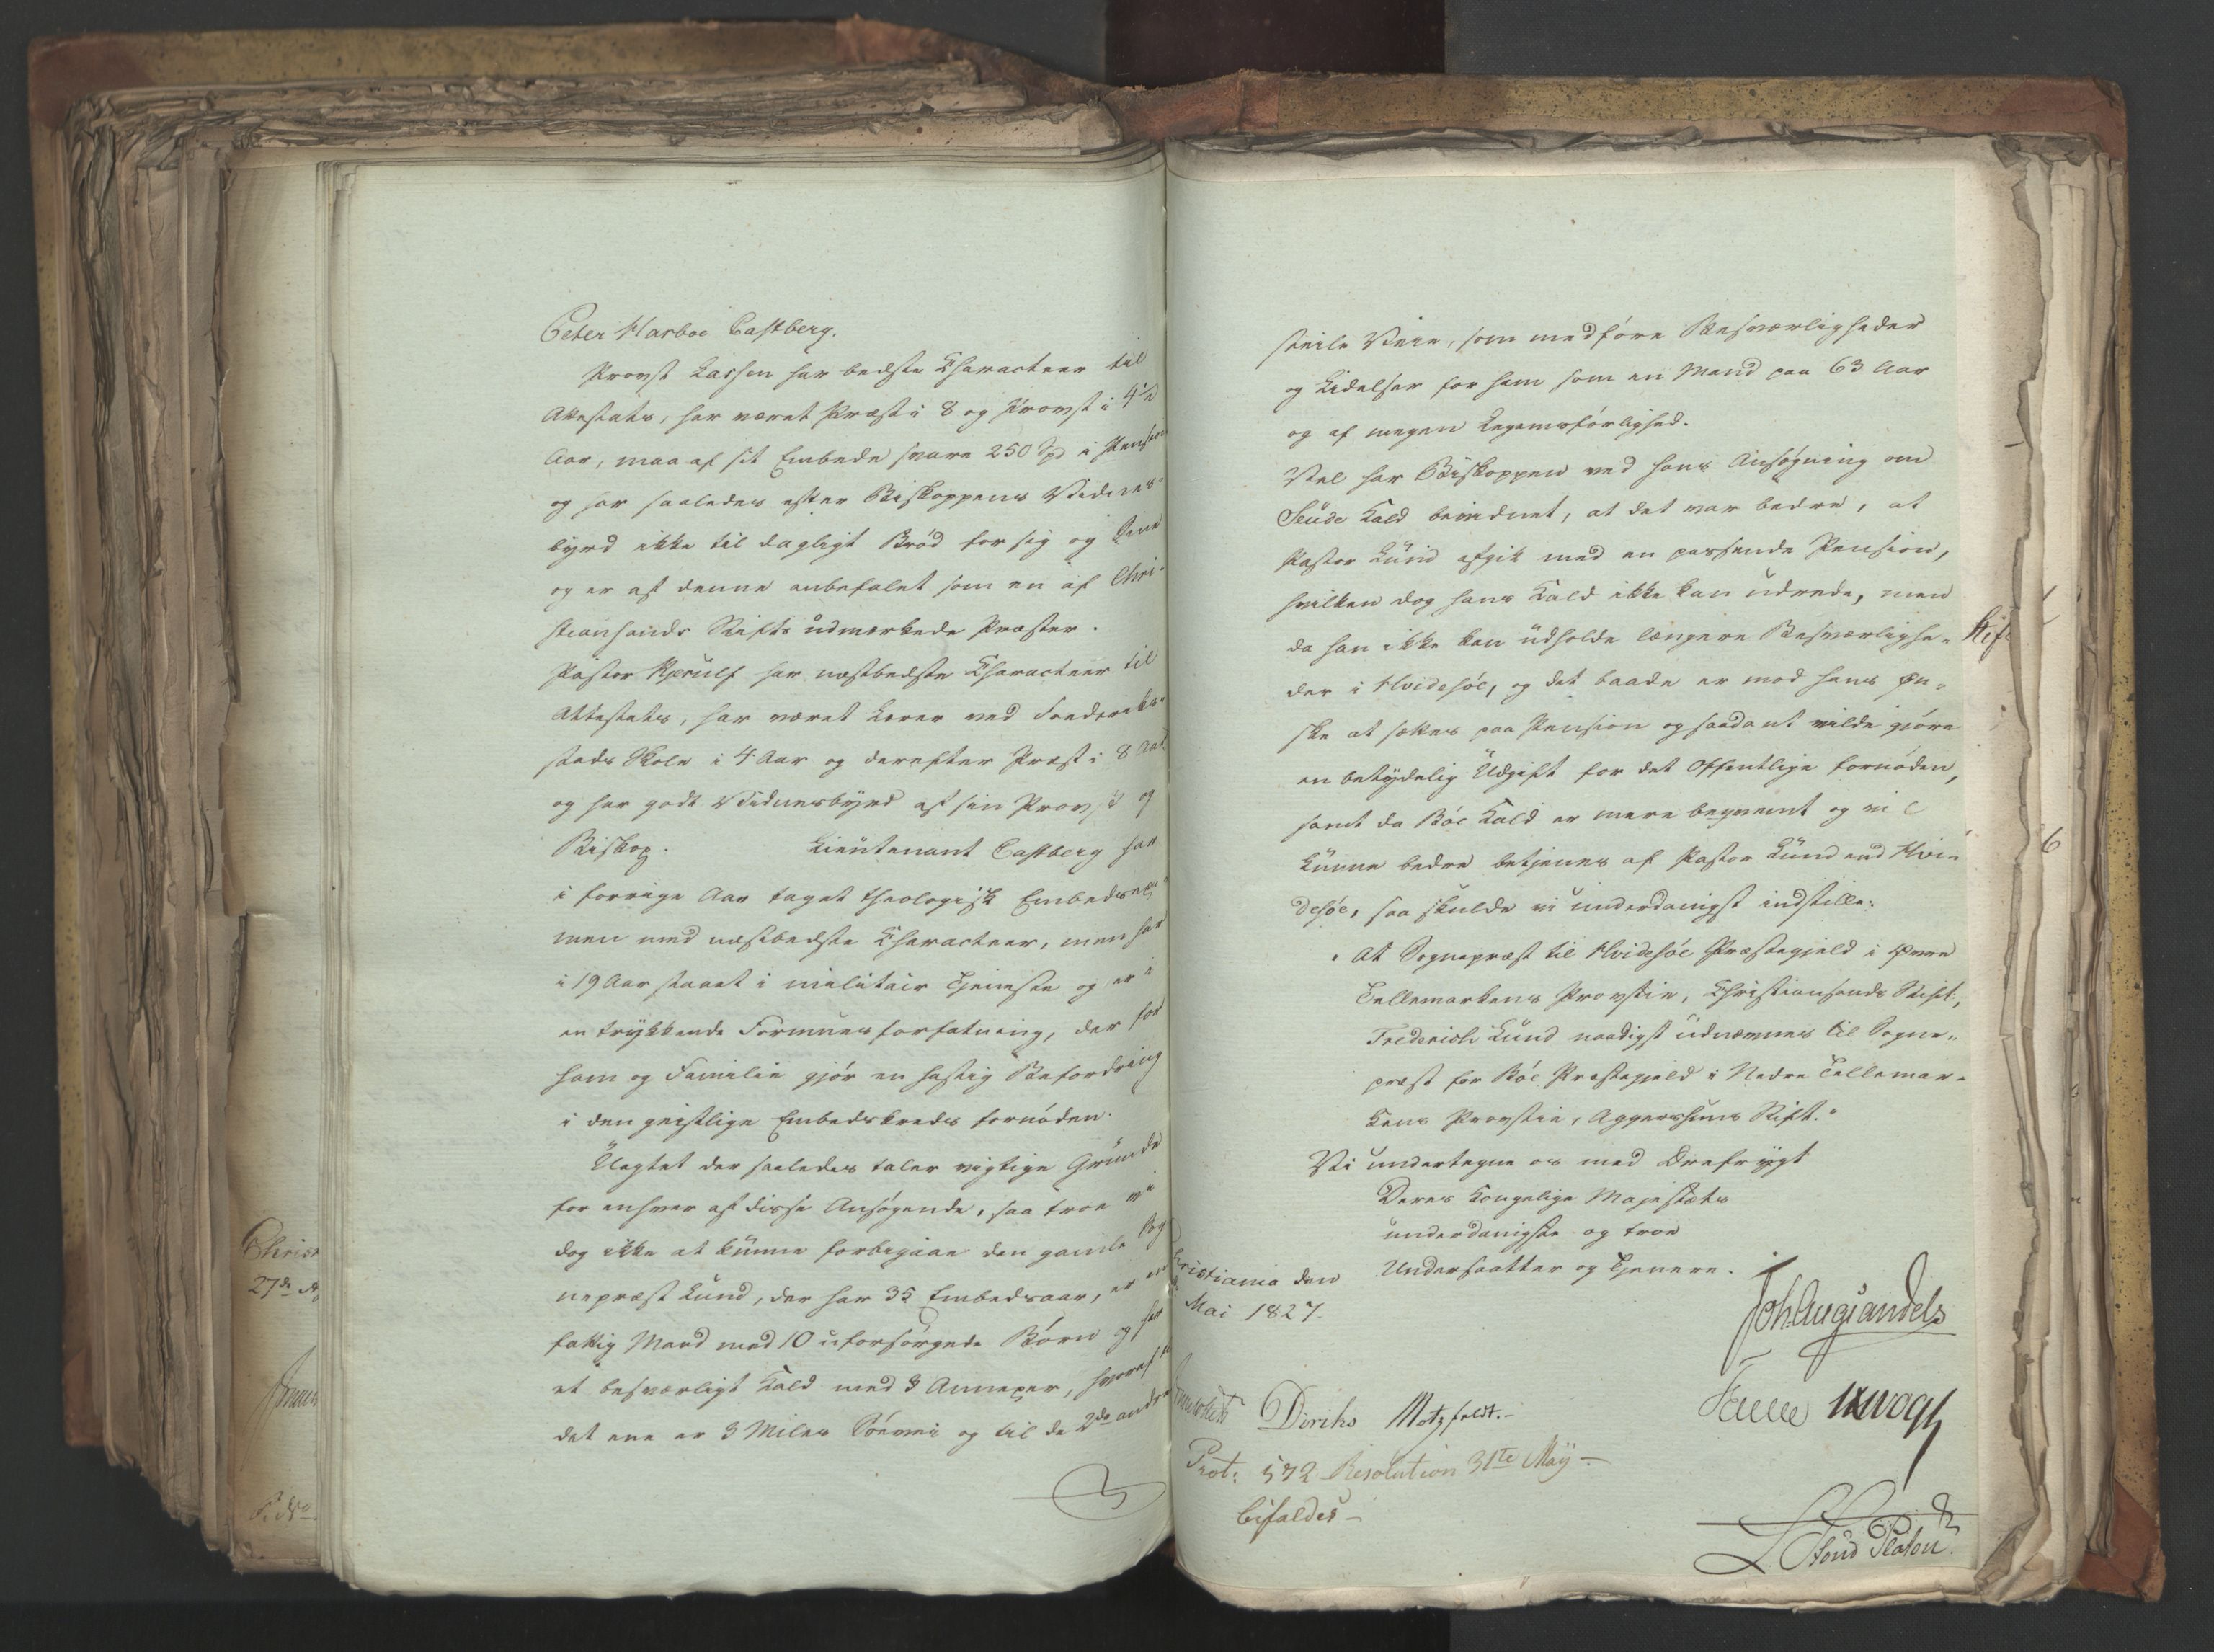 Peter Harboe Castberg.
Provst Lassen har bedste Charakteer til
Attestats, har været Præst i 8 og Provst i 4½
Aar, maa af sit Embede svare 250 Spd i Pension
og har saaledes efter Biskoppens Vidnes-
byrd ikke til dagligt Brød for sig og Sine
og er af denne anbefalet som en af Chri-
stiansands Stifts udmærkede Præster.
Pastor Kjerulf har næstbedste Charakteer til
Attestats, har været Lærer ved Frederiks-
stads Skole i 4 Aar og derefter Præst i 8 Aar
og har godt Vidnesbyrd af sin Provst og
Biskop. Lieutenant Castberg har
i forrige Aar taget theologisk Embedsexa-
men med næstbedste Charakteer, men har
i 19 Aar staaet i militair Tjeneste og er i
en trykkende Formuesforfatning, der for
ham og Familie gjør en hastig Befordring
i den geistlige Embedskreds fornøden.
Uagtet der saaledes taler vigtige Grunde
for enhver af disse Ansøgende, saa troe vi
dog ikke at kunne forbigaae den gamle Sog-
nepræst Lund, der har 35 Embedsaar, er en
fattig Mand med 10 uforsørgede Børn og har
et besværligt Kald med 3 Annexer, hvoraf til
det ene er 3 Miles Søevei og til de 2de andre
steile Veie, som medføre Besværligheder
og Lidelser for ham som en Mand paa 63 Aar
og af megen Legemsførlighed.
Vel har Biskoppen ved hans Ansøgning om
Seude Kald bevidnet, at det var bedre, at
Pastor Lund afgik med en passende Pension,
hvilken dog hans Kald ikke kan udrede, men
da han ikke kan udholde længere Besværlighe-
der i Hvidesøe, og det baade er mod hans Øn-
ske at sættes paa Pension og saadant vilde gjøre
en betydelig Udgift for det Offentlige fornøden,
samt da Bøe Kald er mere beqvemt og vil
kunne bedre betjenes af Pastor Lund end Hvi-
desøe, saa skulde vi underdanigst indstille:
"At Sognepræst til Hvidesøe Præstegjeld i Øvre
Tellemarkens Provstie, Christiansands Stift,
Frederich Lund naadigst udnævnes til Sogne-
præst for Bøe Præstegjeld i Nedre Tellemar-
kens Provstie, Aggershuus Stift."
Vi undertegne os med Ærefrygt
Deres Kongelige Majestæts
underdanigste og troe
Undersaatter og Tjenere.
Christiania den
Mai 1827.
Joh. Aug: Sandels
Diriks Motzfeldt.
Fasting Krogh
Prot: 572 Resolution 31te May -
bifaldes -
L. Stoud Platou